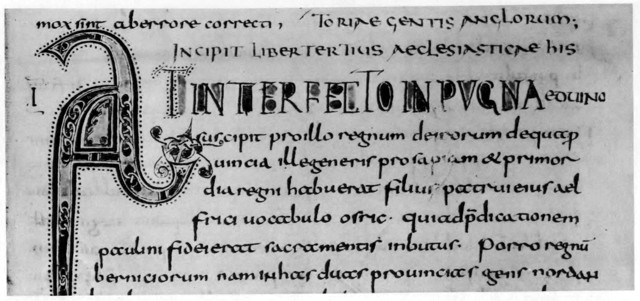 mox sint ab errore correcti, TORIAE GENTIS ANGLORUM;
INCIPIT LIBER TERTIUS AECLESIASTICAE HIS
I AT INTERFECTO IN PVGNA eduino
suscipit pro illo regnum deirorum de qua p
uincia ille generis prosapiam & primor
dia regni habuerat filius patrui eius ael
frici uocabulo osric· qui ad p̄dicationem
paulini fidei erat sacramentis inbutus. Porro regnū
berniciorum nam in has duas prouincias gens nordan